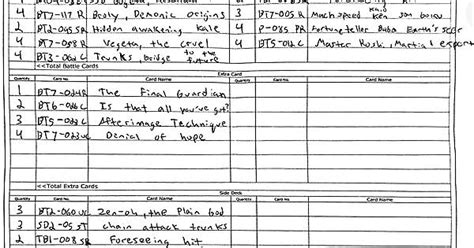 4 BT7-117 R Broly, Demonic Origins 3 BT7-085R Machspeed ken son bow
2 BT2-045SR Hidden awakening kale 4 P-035 PR Fortuneteller Baba Earth's
4 BT7-078R Vegeta, the cruel 4 BT5-012C Master Roshi, Martial expert
4 BT3-062C Trunks bridge to the future
<<Total Battle Cards
Extra Card
Quantity Card No. Card Name Quantity Card No. Card Name
1 BT7-024R The Final Guardian
2 BT6-026C Is that all you've got?
3 BT5-022C Afterimage Technique
4 BT7-023UC Denial of hope
<<Total Extra Cards
Side Deck
Quantity Card No. Card Name Quantity Card No. Card Name
3 BT2-060UC Zen-oh, the Plain God
3 SD2-05 ST chain attack trunks
2 TB1-008SR Foreseeing hit